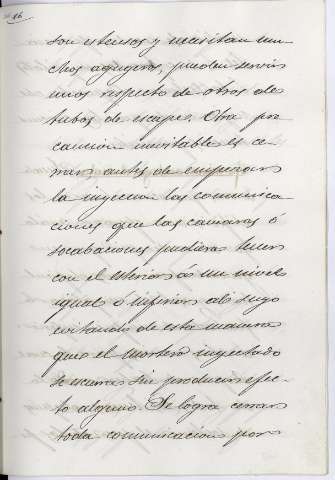 16
son estensos y necesitan mu-
chos agugeros, pueden servir
unos respecto de otros de
tubos de escape. Otra pre
caucion inevitable es ce-
rrar, antes de empezar
la inyeccion las comunica
ciones que las camaras ó
socabaciones pudieran tener
con el exterior á un nivel
igual ó inferior al suyo
evitando de esta manera
que el mortero inyectado
se escurra sin producir efec-
to alguno. Se logra cerrar
toda comunicacion por